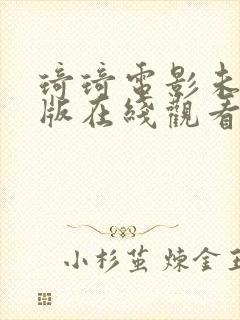 琦琦電影未
版在綫觀看
小杉茧 煉金王